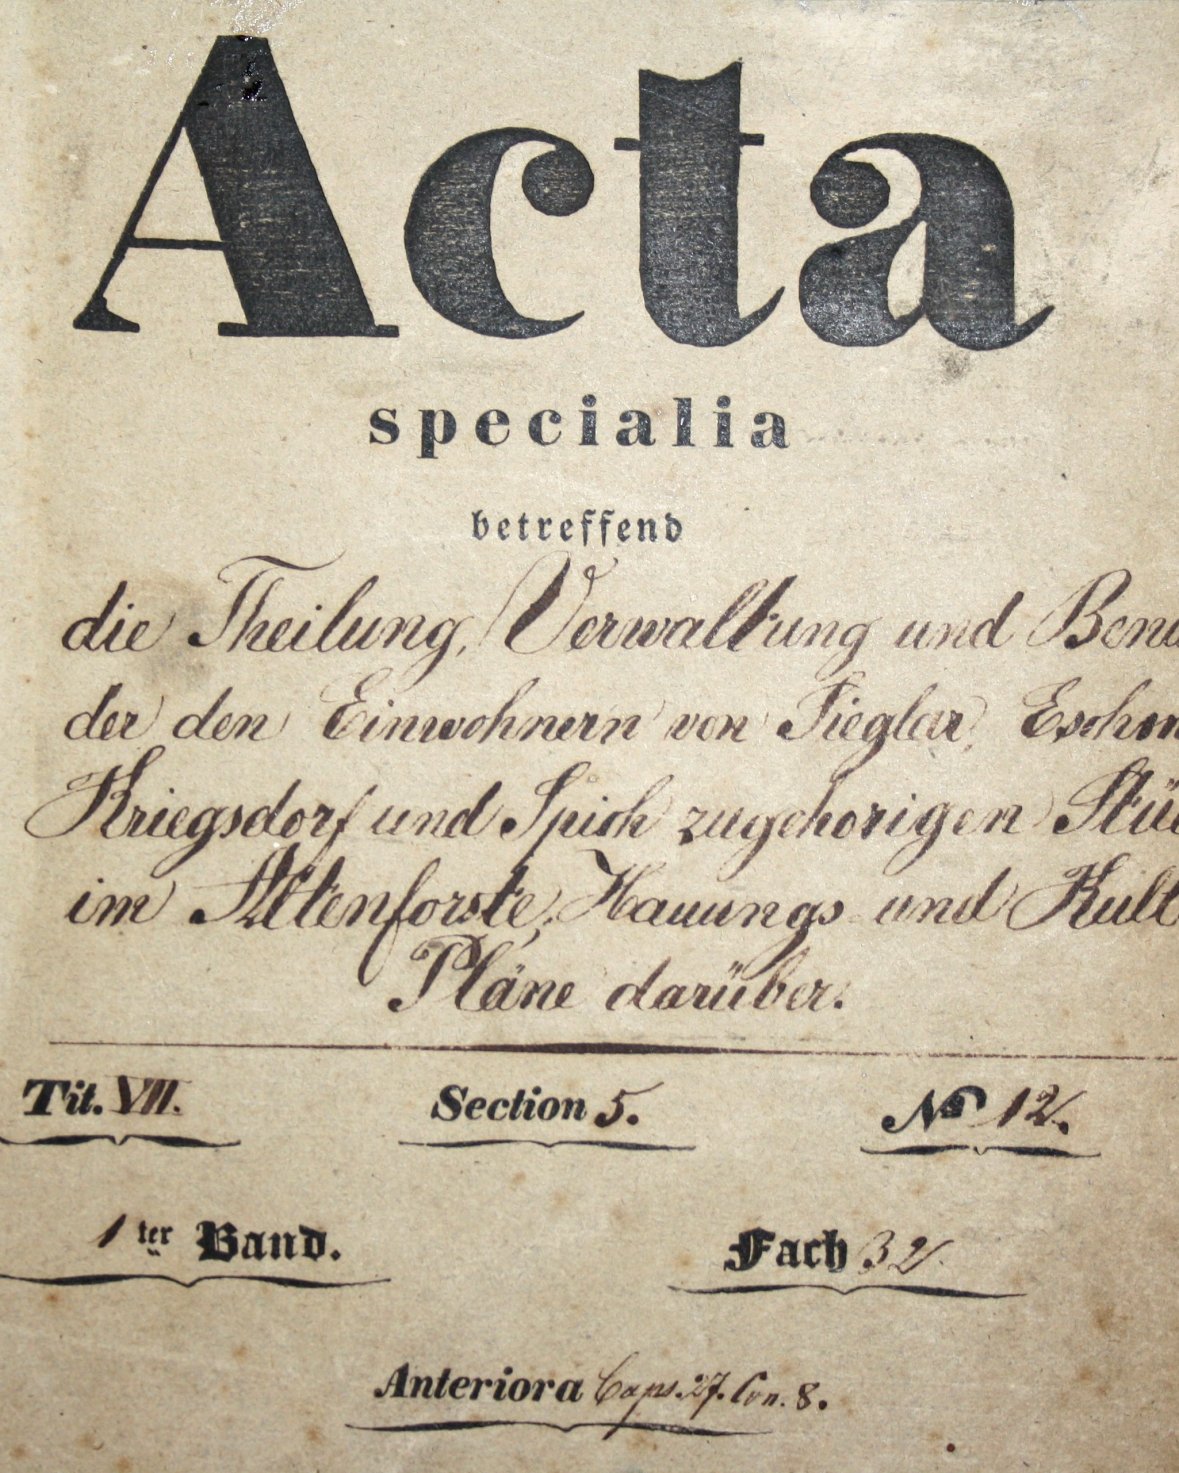 Acta
specialia
betreffend
die Theilung, Verwaltung und Benu
der den Einwohnern von Sieglar, Eschm
Kriegsdorf und Spich zugehorigen Stü
im Altenforste, Hauungs und Kult
Pläne darüber.
Tit. VII. Section 5. No 12.
1ter Band. Fach 32.
Anteriora Caps. 27. Con. 8.